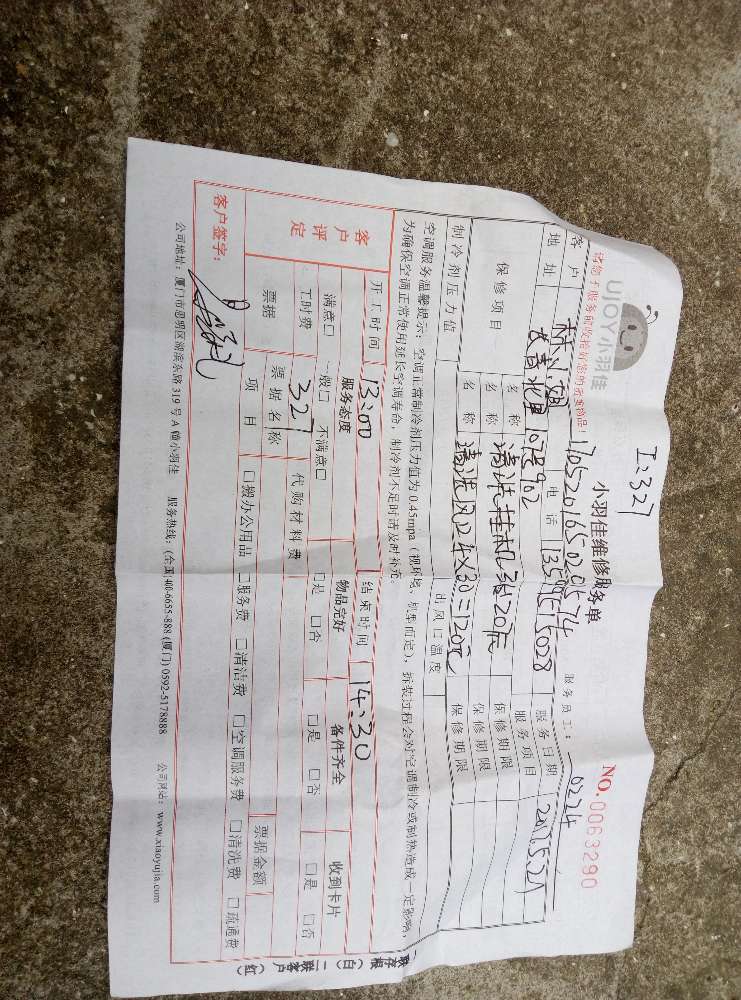 I:327
UJOY小羽佳
小羽佳维修服务单
NO.0063290
请您于服务前收捡好您的贵重物品!
1705201650201574
服务员工: 0224
客户 林小姐 电话 13595715028 服务日期
地址 长青北里107号902 服务项目
保修项目 名称 清洗挂机 保修期限
名称 清洗风口4×30=120元 保修期限
制冷剂压力值 出风口温度
空调服务温馨提示:空调正常制冷剂压力值为0.45mpa(视环境、机型而定),拆装过程会对空调制冷或制热造成一定影响,
为确保空调正常使用延长空调寿命,制冷剂不足时请及时补充。
开工时间 13:00 结束时间 14:30
客户评定 服务态度 物品完好 备件齐全 收到卡片
满点□ 一般□ 不满点□ □是 □否 □是 □否 □是 □否
工时费 327 代购材料费
票据 票据名称 票据金额
项目 □搬办公用品 □服务费 □清洁费 □空调服务费 □清洗费 □疏通费
客户签字:
公司地址:厦门市思明区湖滨东路319号A幢小羽佳 服务热线:(全国)400-6655-888 (厦门) 0592-5178888 公司网站:www.xiaoyujia.com
一联存根(白) 二联客户(红)